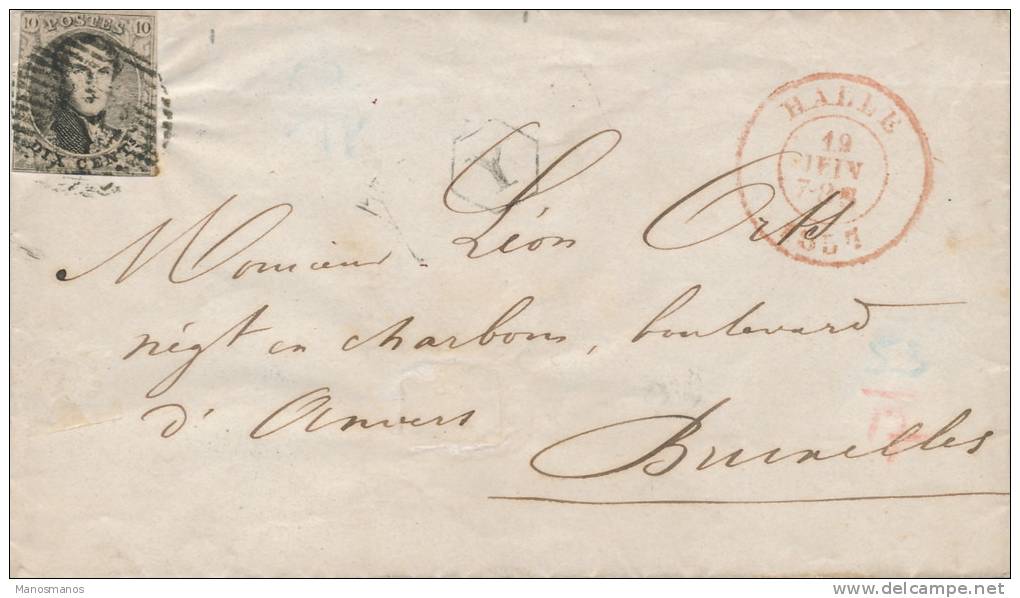 10 POSTES 10
DIX CENTS
Y
HALLE
19
JUIN
1857
Monsieur Léon Orts
négt en charbons, boulevard
d'Anvers
Bruxelles
Manosmanos
delcampe.net